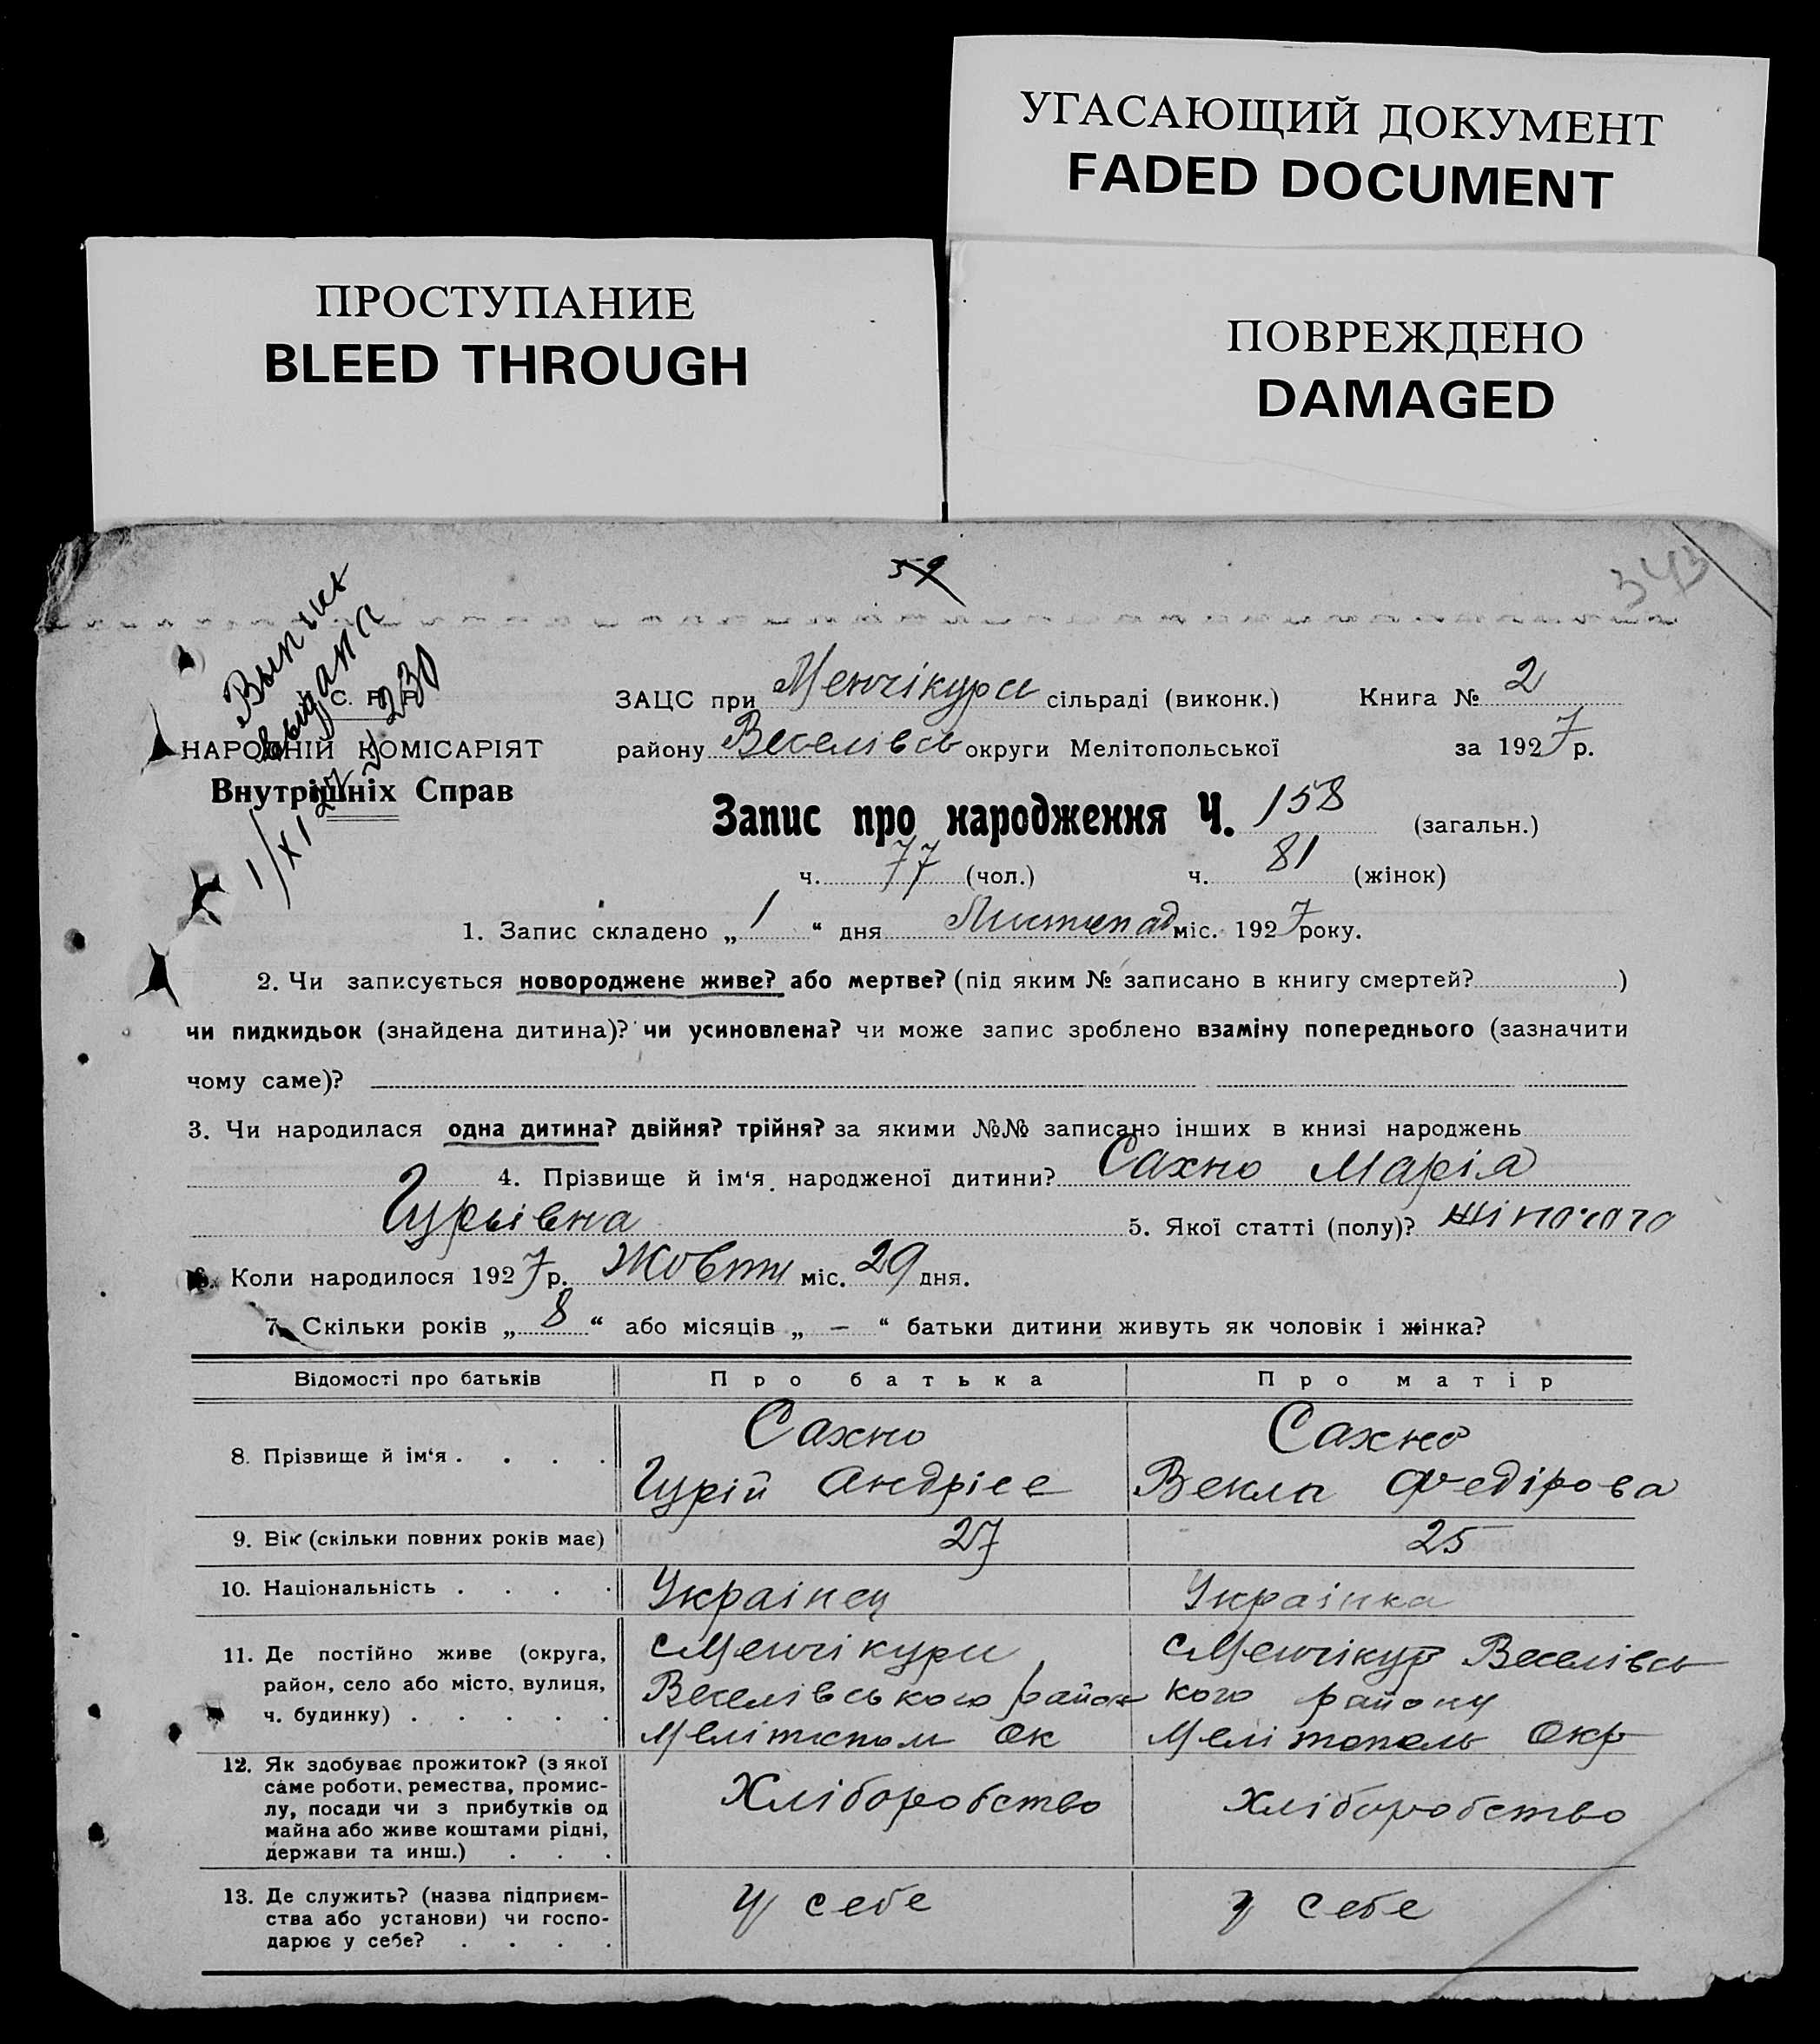 УГАСАЮЩИЙ ДОКУМЕНТ
FADED DOCUMENT
ПРОСТУПАНИЕ
BLEED THROUGH
ПОВРЕЖДЕНО
DAMAGED
59
343
Выпись
выдана
230
1/XI 27
С. Р. Р.
НАРОДНІЙ КОМІСАРІЯТ
Внутрішніх Справ
ЗАЦС при Менчікури сільраді (виконк.) Книга № 2
району Веселівсь округи Мелітопольської за 1927 р.
Запис про народження Ч. 158 (загальн.)
ч. 77 (чол.) ч. 81 (жінок)
1. Запис складено „ 1 “ дня Листопад міс. 1927 року.
2. Чи записується новороджене живе? або мертве? (під яким № записано в книгу смертей? )
чи пидкидьок (знайдена дитина)? чи усиновлена? чи може запис зроблено взаміну попереднього (зазначити
чому саме)?
3. Чи народилася одна дитина? двійня? трійня? за якими №№ записано інших в книзі народжень
4. Прізвище й ім‘я народженої дитини? Сахно Марія
Гурыівна 5. Якої статті (полу)? жіночого
6. Коли народилося 1927 р. Жовтн міс. 29 дня.
7. Скільки років „ 8 “ або місяців „ — “ батьки дитини живуть як чоловік і жінка?
Відомості про батьків Про батька Про матір
8. Прізвище й ім‘я . . . . Сахно Сахно
Гурій Андріев Векла Федірова
9. Вік (скільки повних років має) 27 25
10. Національність . . . . Украінец Украінка
11. Де постійно живе (округа, район, село або місто, вулиця, ч. будинку) . . . . .
с Менчікури
Веселівського район
Мелітополь Ок
с Менчікур Веселівсь
кого району
Мелітополь Окр
12. Як здобуває прожиток? (з якої
саме роботи, ремества, промис-
лу, посади чи з прибутків од
майна або живе коштами рідні,
держави та инш.) . . .
Хліборобство Хліборобство
13. Де служить? (назва підприєм-
ства або установи) чи госпо-
дарює у себе? . . . .
У себе У себе